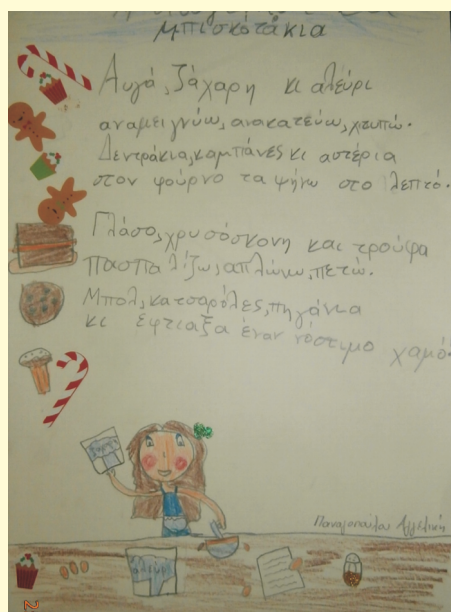 μπισκοτάκια
Αυγά, ζάχαρη κι αλεύρι
αναμειγνύω, ανακατεύω, χτυπώ.
Δεντράκια, καμπάνες κι αστέρια
στον φούρνο τα ψήνω στο λεπτό.
Γλάσο, χρυσόσκονη και τρούφα
πασπαλίζω, απλώνω, πετώ.
Μπολ, κατσαρόλες, πηγάνια
κι έφτιαξα έναν νόστιμο χαμό.
Παναγοπούλου Αγγελική
αλεύρι
2